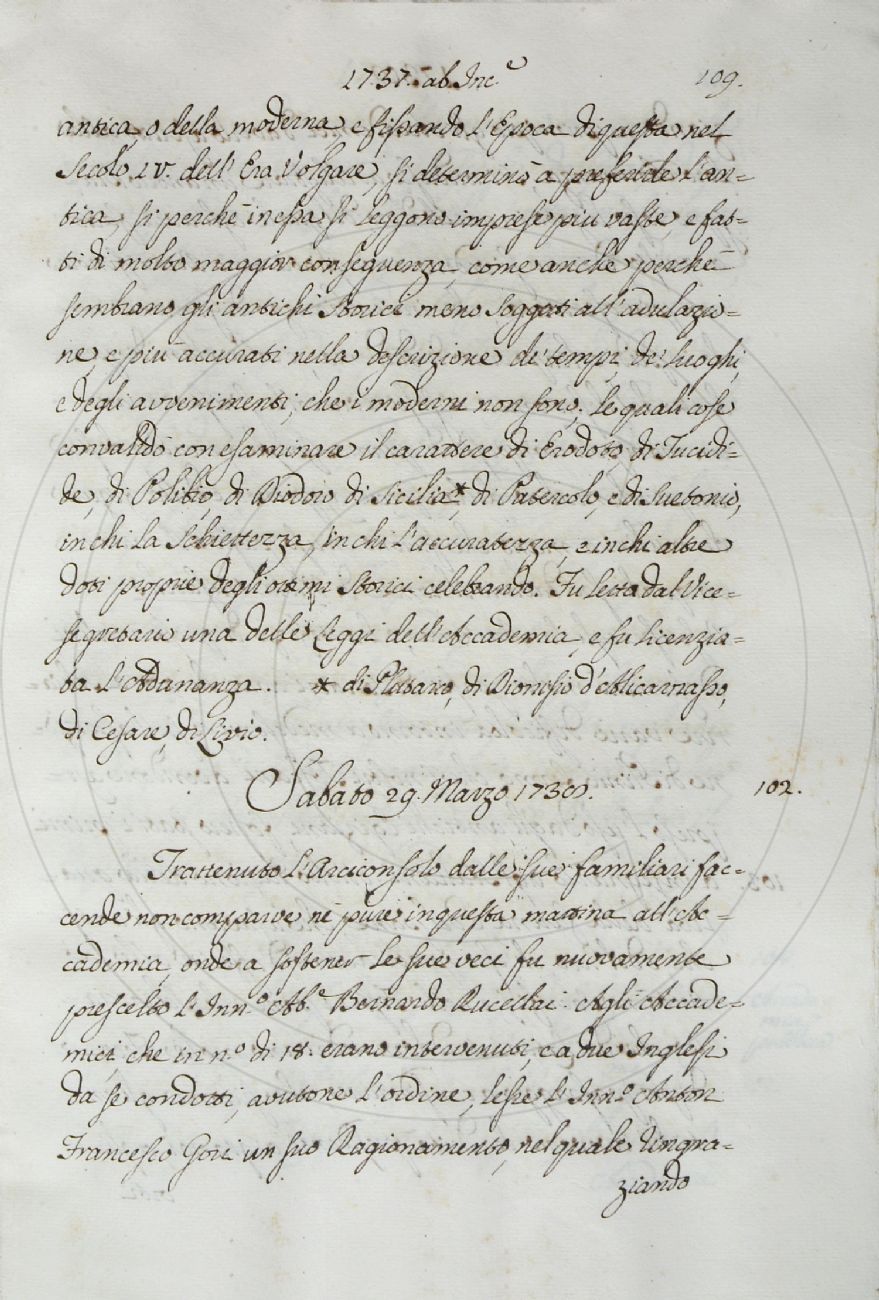 1737. ab Inc.e 109.
antica, o della moderna, e fissando l'Epoca di questa nel
Secolo IV. dell'Era Volgare, si determinò a preferire l'an=
tica, sì perchè in essa si leggono imprese più vaste, e fat=
ti di molto maggior conseguenza, come anche perchè
sembrano gli antichi Storici meno soggetti all'adulazio=
ne, e più accurati nella descrizione de' tempi, de' luoghi,
e degli avvenimenti, che i moderni non sono. Le quali cose
convalidò con esaminare il carattere di Erodoto, di Tucidi=
de, di Polibio, di Diodoro di Sicilia*, di Patercolo, e di Suetonio,
in chi la Schiettezza, in chi l'accuratezza, e in chi altre
doti proprie degli ottimi Storici celebrando. Fu letta dal Vice=
segretario una delle Leggi dell'Accademia, e fu licenzia=
ta l'Adunanza. * di Plutarco, di Dionisio d'Alicarnasso,
di Cesare, di Livio.
Sabato 29. Marzo 1738. 102.
Trattenuto l'Arciconsolo dalle sue familiari fac=
cende non comparve nè pure in questa mattina all'Ac=
cademia, onde a sostener le sue veci fu nuovamente
prescelto l'Inn.o Ab.e Bernardo Rucellai. Agli Accade=
mici, che in n.o di 18. erano intervenuti, e a due Inglesi
da se condotti, avutone l'ordine, lesse l'Inn.o Anton
Francesco Gori un suo Ragionamento, nel quale ringra=
ziando